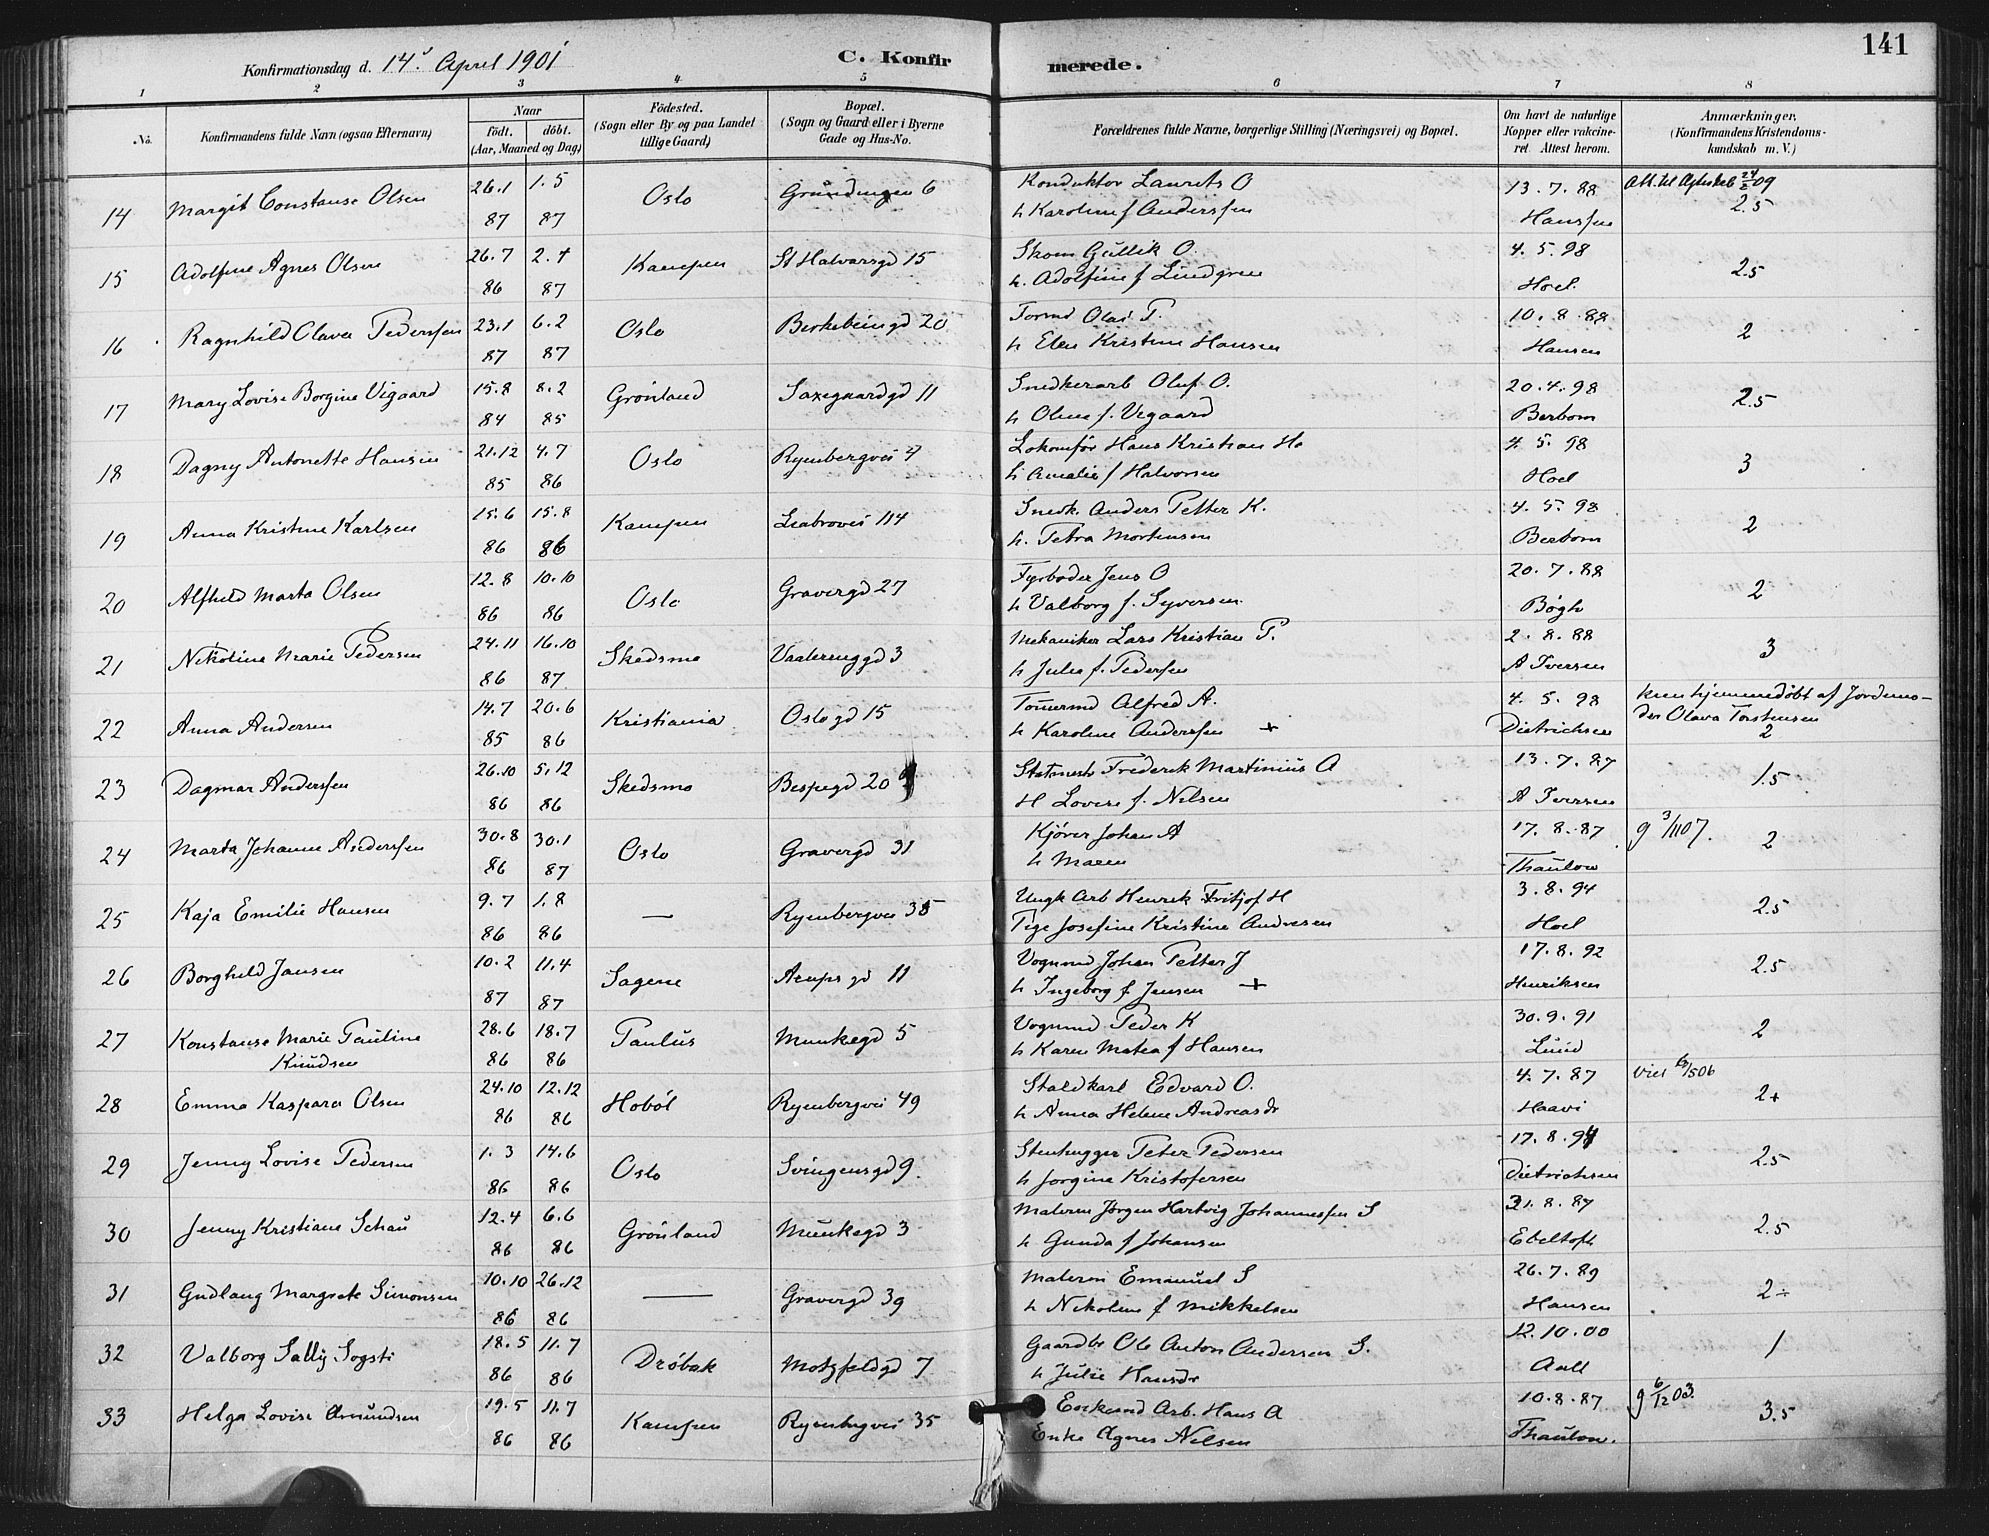 141
Konfirmationsdag d. 14. April 1901 C. Konfirmerede.
1 2 3 4 5 6 7 8
No. Konfirmandens fulde Navn (ogsaa Efternavn) Naar født. døbt. (Aar, Maaned og Dag) Fødested. (Sogn eller By og paa Landet tillige Gaard) Bopæl. (Sogn og Gaard eller i Byerne Gade og Hus-No. Forældrenes fulde Navne, borgerlige Stilling (Næringsvei) og Bopæl. Om havt de naturlige Kopper eller vaccineret. Attest herom. Anmærkninger. (Konfirmandens Kristendomskundskab m. V.)
14 Margit Constanse Olsen 26.1 1.5 Oslo Gründingen 6 Konduktør Laurits O 13.7.88 Att. til 24/2 09
87 87 h Karoline f Anderssen Hanssen 2.5
15 Adolfine Agnes Olsen 26.7 2.4 Kampen St Halvarsgd 15 Skom Gullik O. 4.5.98 2.5
86 87 h. Adolfine f Lindgren Hoel.
16 Ragnhild Olava Pederssen 23.1 6.2 Oslo Berkebeingd 20 Formd Olas P. 10.8.88 2
87 87 h Elen Kristine Hansen Hansen
17 Mary Lovise Borgine Vegaard 15.8 8.2 Grønland Saxegaardgd 11 Snedkerarb Oluf O. 20.4.98 2.5
84 85 h Oline f. Vegaard Berbom
18 Dagny Antonette Hansen 21.12 4.7 Oslo Ryenbergvei 4 Lokomfør Hans Kristian Ha 4.5.98 3
85 86 h Amalie f Halvorsen Hoel
19 Anna Kristine Karlsen 15.6 15.8 Kampen Ljabrovei 114 Snedk. Anders Petter K. 4.5.98 2
86 86 h. Petra Mortensen Berbom
20 Alfhild Marta Olsen 12.8 10.10 Oslo Gravergd 27 Fyrbøder Jens O 20.7.88 2
86 86 h Valborg f. Syversen Bøgh
21 Nikoline Marie Pedersen 24.11 16.10 Skedsmo Vaalerenggd 3 Mekaniker Lars Kristian P. 2.8.88 3
86 87 h Julie f. Pedersen A Iversen
22 Anna Andersen 14.7 20.6 Kristiania Oslogd 15 Tømermd Alfred A. 4.5.98 kun hjemmedøbt af Jordemo-
85 86 h Karoline Anderssen + Dietrichsen der Olava Torstensen
2
23 Dagmar Anderssen 26.10 5.12 Skedsmo Bespegd 20 Frederik Martinius A 13.7.87 1.5
86 86 H Lovise f. Nelsen A Iversen
24 Marta Johanne Anderssen 30.8 30.1 Oslo Gravergd 31 Kjører Johan A 17.8.87 g 3/11 07. 2
86 87 h Maren Thaulow
25 Kaja Emilie Hansen 9.7 1.8 — Ryenbergvei 35 Ungk Arb Henrik Fritjof H 3.8.94 2.5
86 86 Pige Josefine Kristine Andresen Hoel
26 Borghild Jansen 10.2 11.4 Sagene Arupsgd 11 Vognmd Johan Petter J 17.8.92 2.5
87 87 h Ingeborg f Jensen + Henriksen
27 Konstanse Marie Pauline 28.6 18.7 Paulus Munkegd 5 Vognmd Peder K 30.9.91 2
Knudsen 86 86 h Karen Matea f Hansen Lund
28 Emma Kaspara Olsen 24.10 12.12 Hobøl Ryenbergvei 49 Staldkarl Edvard O. 4.7.87 viet 6/5 06
86 86 h Anna Helene Andreasdr Haavi 2+
29 Jenny Lovise Pedersen 1.3 14.6 Oslo Svingensgd 9. Stenhugger Peter Pedersen 17.8.94 2.5
86 86 h Jorgine Kristofersen Dietrichsen
30 Jenny Kristiane Schau 12.4 6.6 Grønland Munkegd 3 Malerm Jørgen Hartvig Johannessen S 31.8.87 2.5
86 86 h Gunda f Johansen Ebeltoft
31 Gudlaug Margrete Simonsen 10.10 26.12 — Gravergd 39 Malerm Emanuel S 26.7.89 2÷
86 86 h Nikoline f Mikkelsen Hansen
32 Valborg Sally Sogsti 18.5 11.7 Drøbak Motzfeldgd 7 Gaardbr Ole Anton Andersen S. 12.10.00 1
86 86 h Julie Hansdr Aall
33 Helga Lovise Amundsen 19.5 11.7 Kampen Ryenbergvei 35 Enkemd Arb. Hans A 10.8.87 g 6/12 03. 3.5
86 86 Enke Agnes Nelsen Thaulow.